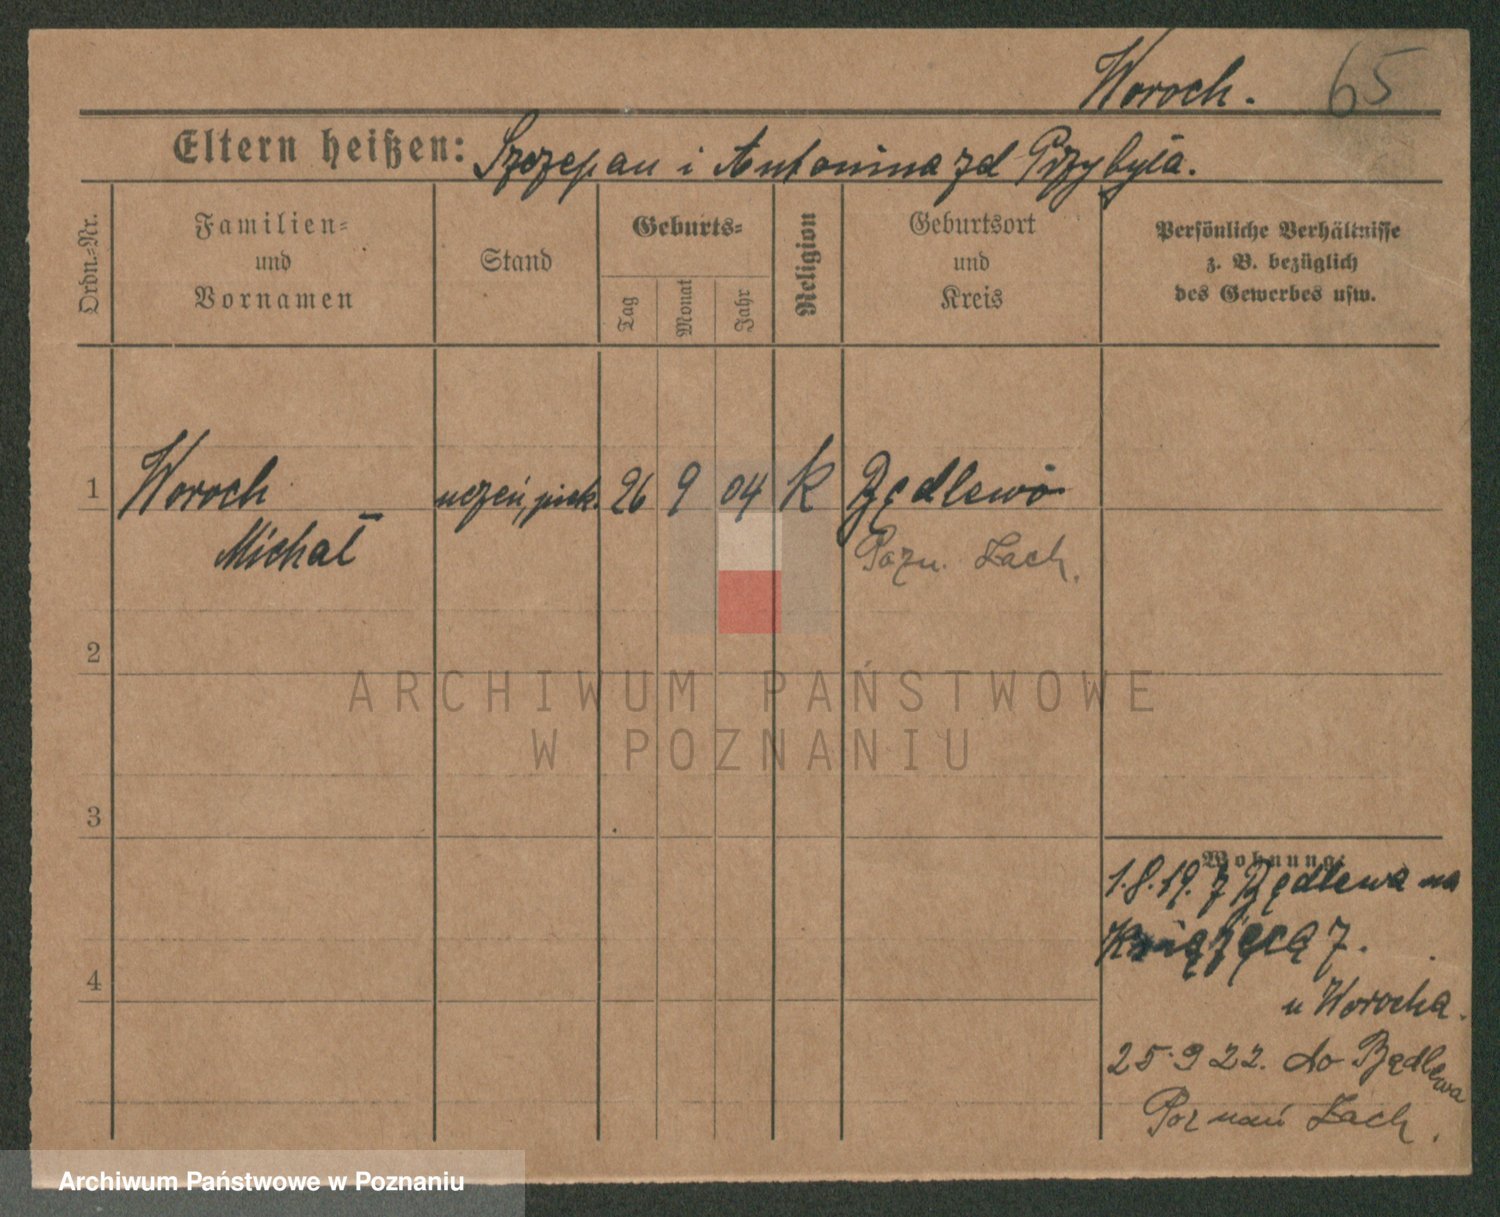 Woroch. 65
Eltern heißen: Szczepan i Antonina zd Przybyła.
Ordn.-Nr.
Familien-
und
Vornamen
Stand
Geburts-
Tag
Monat
Jahr
Religion
Geburtsort
und
Kreis
Persönliche Verhältnisse
z. B. bezüglich
des Gewerbes usw.
1 Woroch uczeń, piek. 26 9 04 K Będlewo
Michał Pozn. Zach.
2
ARCHIWUM PAŃSTWOWE
W POZNANIU
3
Wohnung:
1.8.19. z Będlewa na
Książęcą 7.
4
u Worocha.
25.9 22. do Będlewa
Poznań Zach.
Archiwum Państwowe w Poznaniu